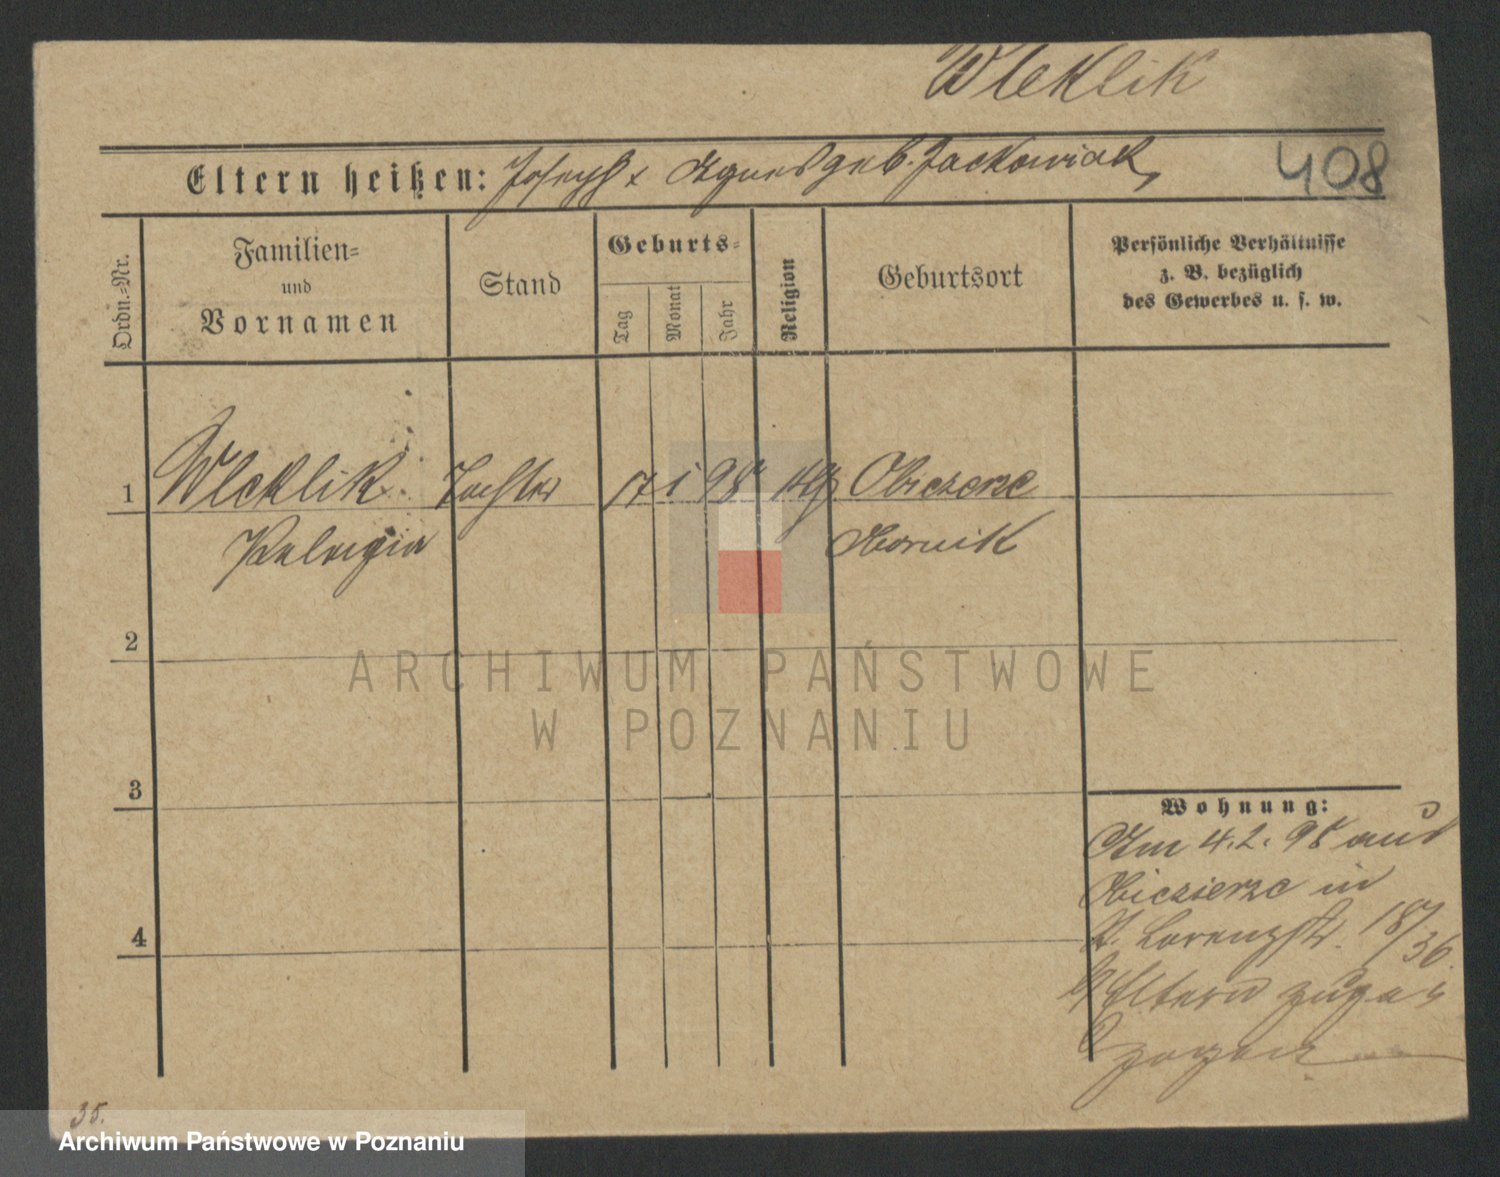 Wleklik
Eltern heißen: Joseph x Agnes geb. Jackowiak,
408
Ordn.-Nr.
Familien-
und
Vornamen
Stand
Geburts-
Tag
Monat
Jahr
Religion
Geburtsort
Persönliche Verhältnisse
z. B. bezüglich
des Gewerbes u. s. w.
1 Wleklik Tochter 17 1 98 kth Obiezerze
Pelagia Obornik
2
ARCHIWUM PAŃSTWOWE
W POZNANIU
3
Wohnung:
Am 4.2. 98 aus
Obiezierze in
St. Lorenzstr. 18/36
b/ Eltern zuge-
zogen
4
35.
Archiwum Państwowe w Poznaniu